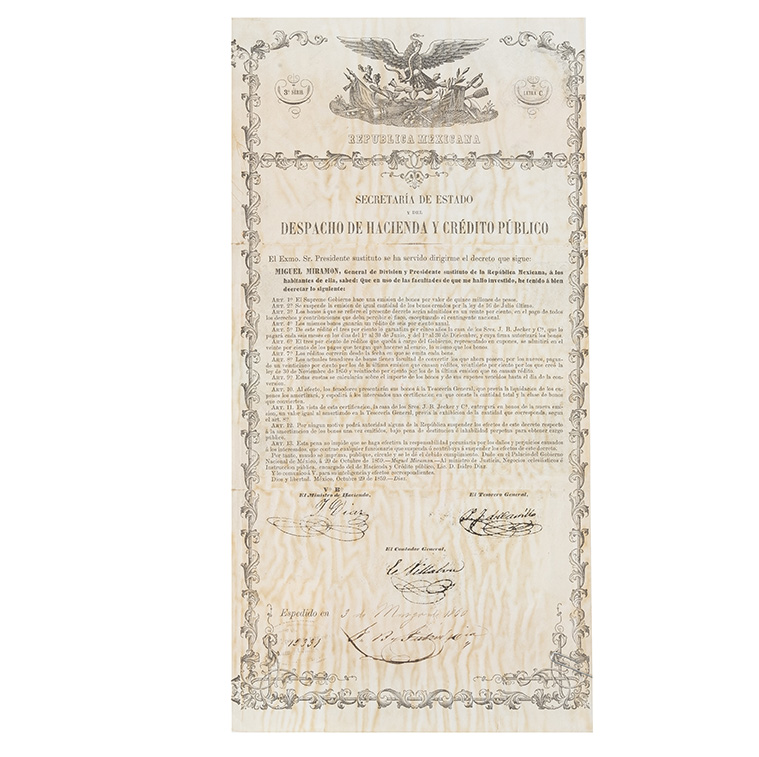 3ª SÉRIE
LETRA C
REPUBLICA MEXICANA
SECRETARÍA DE ESTADO
Y DEL
DESPACHO DE HACIENDA Y CRÉDITO PÚBLICO
El Exmo. Sr. Presidente sustituto se ha servido dirigirme el decreto que sigue:
MIGUEL MIRAMON, General de Division y Presidente sustituto de la República Mexicana, á los
habitantes de ella, sabed: Que en uso de las facultades de que me hallo investido, he tenido á bien
decretar lo siguiente:
ART. 1º El Supremo Gobierno hace una emision de bonos por valor de quince millones de pesos.
ART. 2º Se suspende la emision de igual cantidad de los bonos creados por la ley de 16 de Julio último.
ART. 3º Los bonos á que se refiere el presente decreto serán admitidos en un veinte por ciento, en el pago de todos
los derechos y contribuciones que deba percibir el fisco, esceptuando el contingente nacional.
ART. 4º Los mismos bonos ganarán un rédito de seis por ciento anual.
ART. 5º De este rédito el tres por ciento lo garantiza por cinco años la casa de los Sres. J. B. Jecker y Cª, que lo
pagará cada seis meses en los dias del 1º al 30 de Junio, y del 1º al 30 de Diciembre, y cuya firma autorizará los bonos.
ART. 6º El tres por ciento de réditos que queda á cargo del Gobierno, representado en cupones, se admitirá en el
veinte por ciento de los pagos que tengan que hacerse al erario, lo mismo que los bonos
ART. 7º Los réditos correrán desde la fecha en que se emita cada bono.
ART. 8º Los actuales tenedores de bonos tienen facultad de convertir los que ahora poseen, por los nuevos, pagando
un veinticinco por ciento por los de la última emision que causan réditos, veintisiete por ciento por los que creó la ley
de 30 de Noviembre de 1850 y veintiocho por ciento por los de la última emision que no causan rédito.
ART. 9º Estas cuotas se calcularán sobre el importe de los bonos y de sus cupones vencidos hasta el dia de la conversion.
ART. 10. Al efecto, los tenedores presentarán sus bonos á la Tesorería General, que previa la liquidacion de los cupones
los amortizará, y espedirá á los interesados una certificacion en que conste la cantidad total y la clase de bonos
que conviertan.
ART. 11. En vista de esta certificacion, la casa de los Sres. J. B. Jecker y Cª, entregará en bonos de la nueva emision,
un valor igual al amortizado en la Tesorería General, previa la exhibicion de la cantidad que corresponda, segun
el art. 8º
ART. 12. Por ningun motivo podrá autoridad alguna de la República suspender los efectos de este decreto respecto
á la amortizacion de los bonos una vez emitidos, bajo pena de destitucion é inhabilidad perpetua para obtener cargo
público.
ART. 13. Esta pena no impide que se haga efectiva la responsabilidad pecuniaria por los daños y perjuicios causados
á los interesados, que contrae cualquier funcionario que suspenda ó contribuya á suspender los efectos de este decreto.
Por tanto, mando se imprima, publique, circule y se le dé el debido cumplimiento. Dado en el Palacio del Gobierno
Nacional de México, á 29 de Octubre de 1859.—Miguel Miramon.—Al ministro de Justicia, Negocios eclesiásticos é
Instruccion pública, encargado del de Hacienda y Crédito público, Lic. D. Isidro Diaz.
Y lo comunico á V. para su inteligencia y efectos correspondientes.
Dios y libertad. México, Octubre 29 de 1859.—Diaz.
Vº Bº
El Ministro de Hacienda,
El Tesorero General,
I. Diaz
El Contador General,
Espedido en 3 de
12331